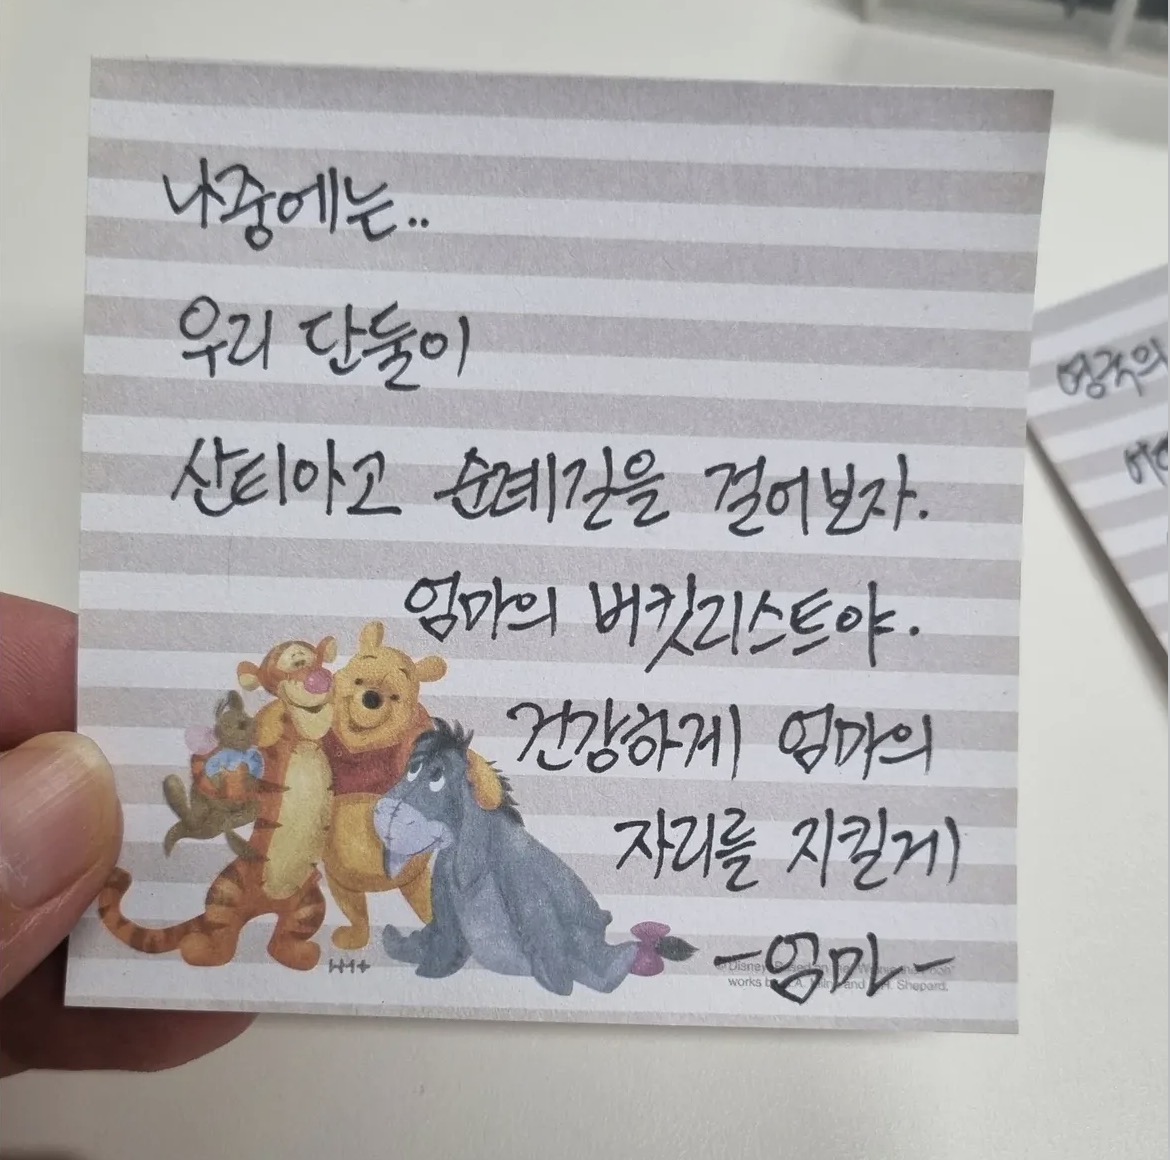 나중에는..
우리 단둘이
산티아고 순례길을 걸어보자.
엄마의 버킷리스트야.
건강하게 엄마의
자리를 지킬게
-엄마-
©Disney Based on the "Winnie the Pooh"
works by A.A. Milne and E.H. Shepard.
영국의